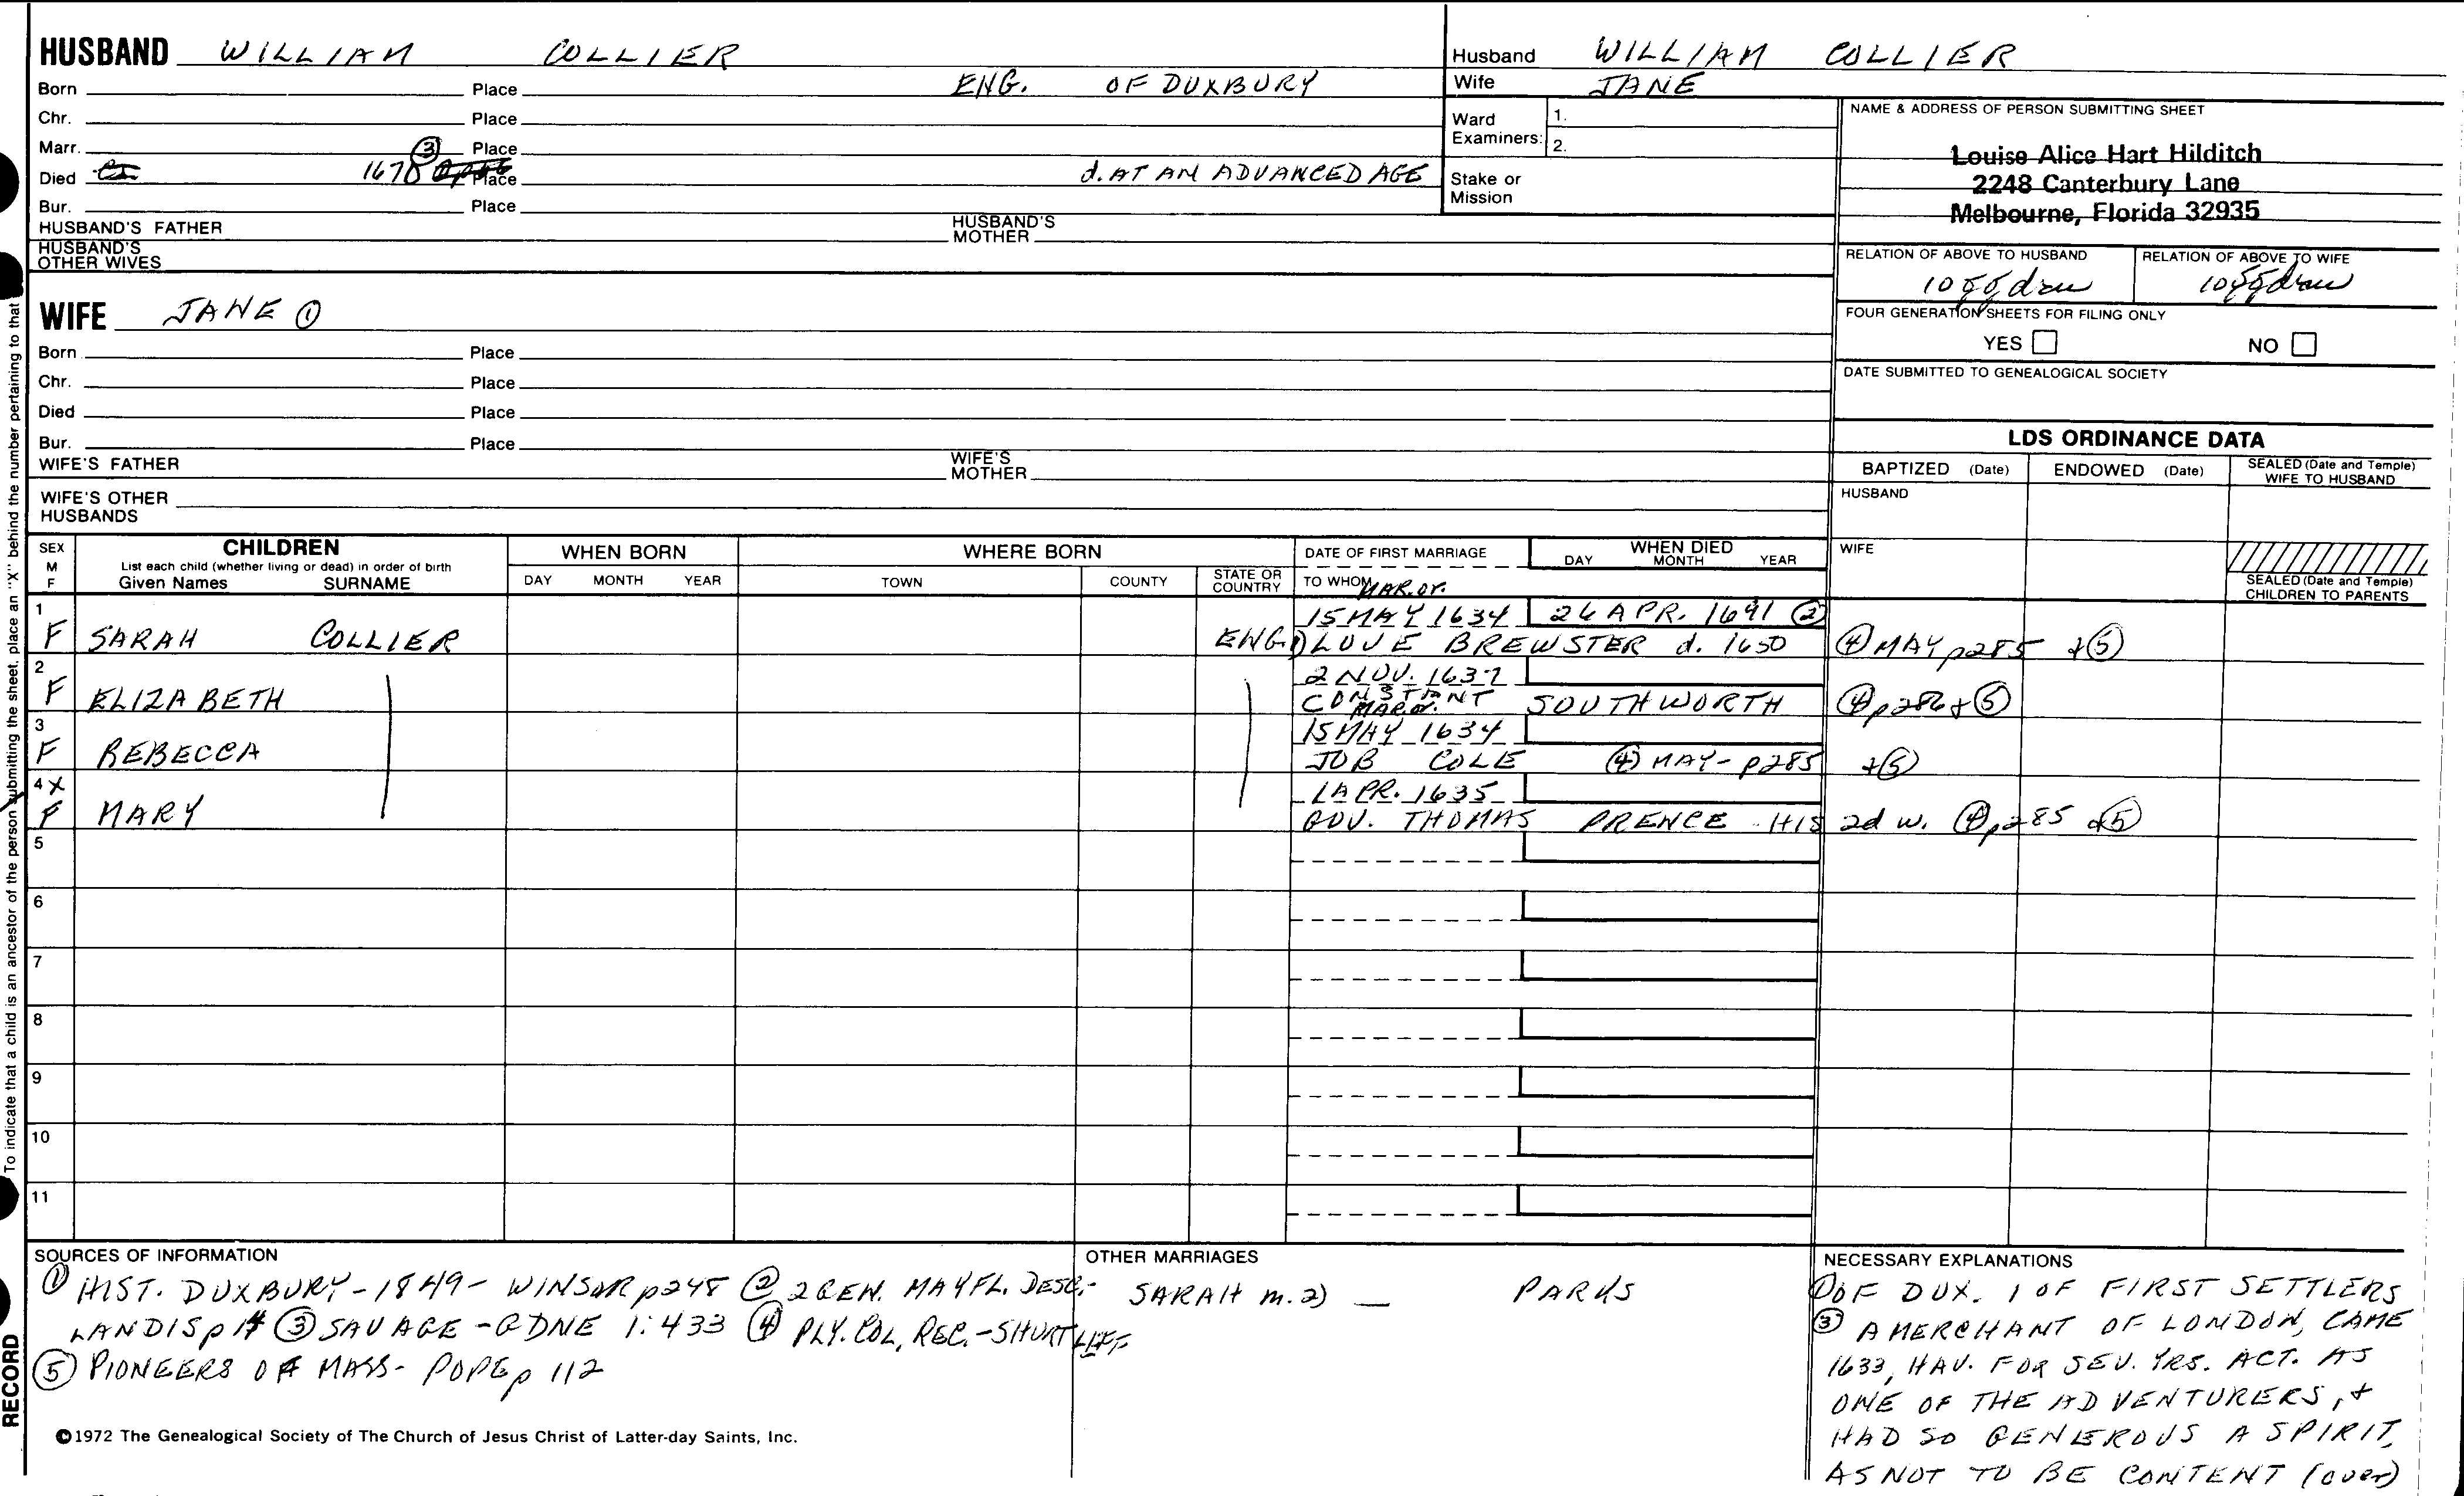 HUSBAND WILLIAM COLLIER
Born Place ENG. OF DUXBURY
Chr. Place
Marr. ③ Place
Died 1670 Place d. AT AN ADVANCED AGE
Bur. Place
HUSBAND'S FATHER HUSBAND'S MOTHER
HUSBAND'S OTHER WIVES
Husband WILLIAM COLLIER
Wife JANE
Ward Examiners: 1.
2.
Stake or Mission
NAME & ADDRESS OF PERSON SUBMITTING SHEET
Louise Alice Hart Hilditch
2248 Canterbury Lane
Melbourne, Florida 32935
RELATION OF ABOVE TO HUSBAND RELATION OF ABOVE TO WIFE
10ggdau 10ggdau
FOUR GENERATION SHEETS FOR FILING ONLY
YES NO
DATE SUBMITTED TO GENEALOGICAL SOCIETY
WIFE JANE ①
Born Place
Chr. Place
Died Place
Bur. Place
WIFE'S FATHER WIFE'S MOTHER
WIFE'S OTHER HUSBANDS
LDS ORDINANCE DATA
BAPTIZED (Date) ENDOWED (Date) SEALED (Date and Temple) WIFE TO HUSBAND
HUSBAND
WIFE
SEALED (Date and Temple) CHILDREN TO PARENTS
SEX M F CHILDREN WHEN BORN WHERE BORN DATE OF FIRST MARRIAGE WHEN DIED
List each child (whether living or dead) in order of birth
Given Names SURNAME DAY MONTH YEAR TOWN COUNTY STATE OR COUNTRY TO WHOM DAY MONTH YEAR
MAR. or.
1 15 MAY 1634 26 APR. 1691 ②
F SARAH COLLIER ENG. 1) LOVE BREWSTER d. 1650 ④ MAY p285 + ⑤
2 2 NOV. 1637
F ELIZABETH CONSTANT SOUTHWORTH ④ p286 + ⑤
MAR. or.
3 15 MAY 1634
F REBECCA JOB COLE ④ MAY - p285 + ⑤
4 X 1 APR. 1635
F MARY GOV. THOMAS PRENCE - HIS 2d w. ④ p285 + ⑤
5
6
7
8
9
10
11
SOURCES OF INFORMATION
① HIST. DUXBURY - 1849 - WINSOR p248 ② 2 GEN. MAYFL. DESC. -
LANDIS p 14 ③ SAVAGE - GDNE 1:433 ④ PLY. COL. REC. - SHURTLIFF
⑤ PIONEERS OF MASS - POPE p 112
©1972 The Genealogical Society of The Church of Jesus Christ of Latter-day Saints, Inc.
OTHER MARRIAGES
SARAH m. 2) — PARKS
NECESSARY EXPLANATIONS
① OF DUX. 1 OF FIRST SETTLERS
③ A MERCHANT OF LONDON, CAME
1633, HAV. FOR SEV. YRS. ACT. AS
ONE OF THE ADVENTURERS, +
HAD SO GENEROUS A SPIRIT,
AS NOT TO BE CONTENT (over)
To indicate that a child is an ancestor of the person submitting the sheet, place an "X" behind the number pertaining to that
RECORD